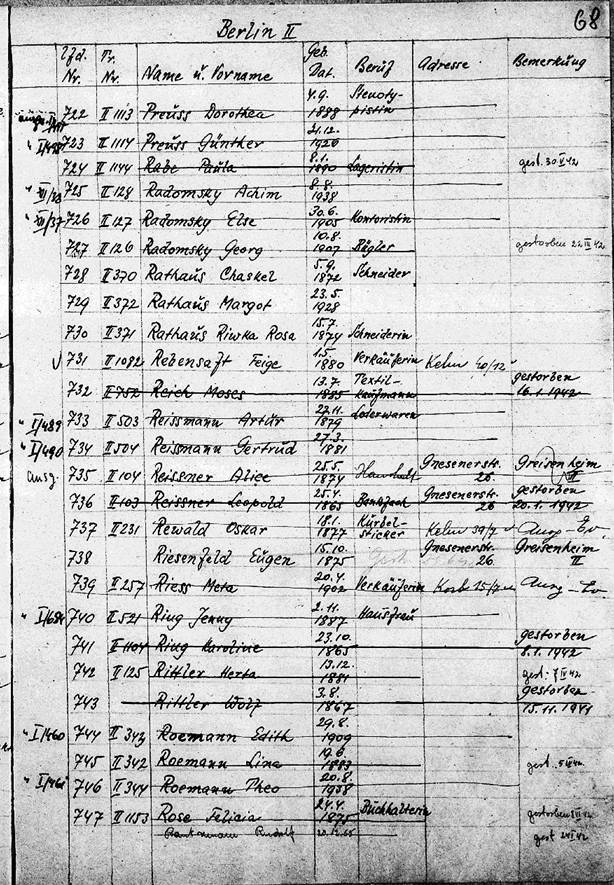 Berlin II 68
Lfd. Nr. Tr. Nr. Name u. Vorname Geb. Dat. Beruf Adresse Bemerkung
722 II 1113 Preuss Dorothea 4.9. 1898 Stenotypistin
723 II 1114 Preuss Günther 21.12. 1926
724 II 1144 Rabe Paula 8.1. 1890 Lageristin gest. 30 IV 42
725 II 128 Radomsky Achim 8.8. 1938
726 II 127 Radomsky Else 30.6. 1905 Kontoristin
727 II 126 Radomsky Georg 10.8. 1907 Bügler gestorben 22 III 42
728 II 370 Rathaus Chaskel 5.9. 1872 Schneider
729 II 372 Rathaus Margot 23.5. 1928
730 II 371 Rathaus Riwka Rosa 15.7. 1874 Schneiderin
731 II 1082 Rebensaft Feige 1.5. 1880 Verkäuferin
732 II 752 Reich Moses 13.7. 1885 Textilkaufmann gestorben 16.1.1942
" I/489 733 II 503 Reissmann Artur 27.11. 1879 Lederwaren
" I/490 734 II 504 Reissmann Gertrud 27.3. 1881
ausg. 735 II 104 Reissner Alice 25.5. 1874 Gnesenerstr. 26. Greisenheim II
736 II 103 Reissner Leopold 25.4. 1865 Bankfach Gnesenerstr. 26 gestorben 20.1.1942
737 II 231 Rewald Oskar 18.1. 1877 Kurbelsticker
738 Riesenfeld Eugen 15.10. 1875 Gnesenerstr. 26. Greisenheim II
739 II 257 Riess Meta 20.4. 1902 Verkäuferin
740 II 521 Ring Jenny 2.11. 1887 Hausfrau
741 II 1104 Ring Karoline 23.10. 1865 gestorben 8.1.1942
742 II 125 Rittler Herta 13.12. 1881 gest. 7 IV 42
743 Rittler Wolf 3.8. 1867 gestorben 15.11.1941
" I/460 744 II 343 Roemann Edith 29.8. 1909
745 II 342 Roemann Line 19.6. 1883 gest.
746 II 344 Roemann Theo 20.8. 1938
747 II 1153 Rose Felicia 24.4. 1875 Buchhalterin gestorben
Rudolf gest